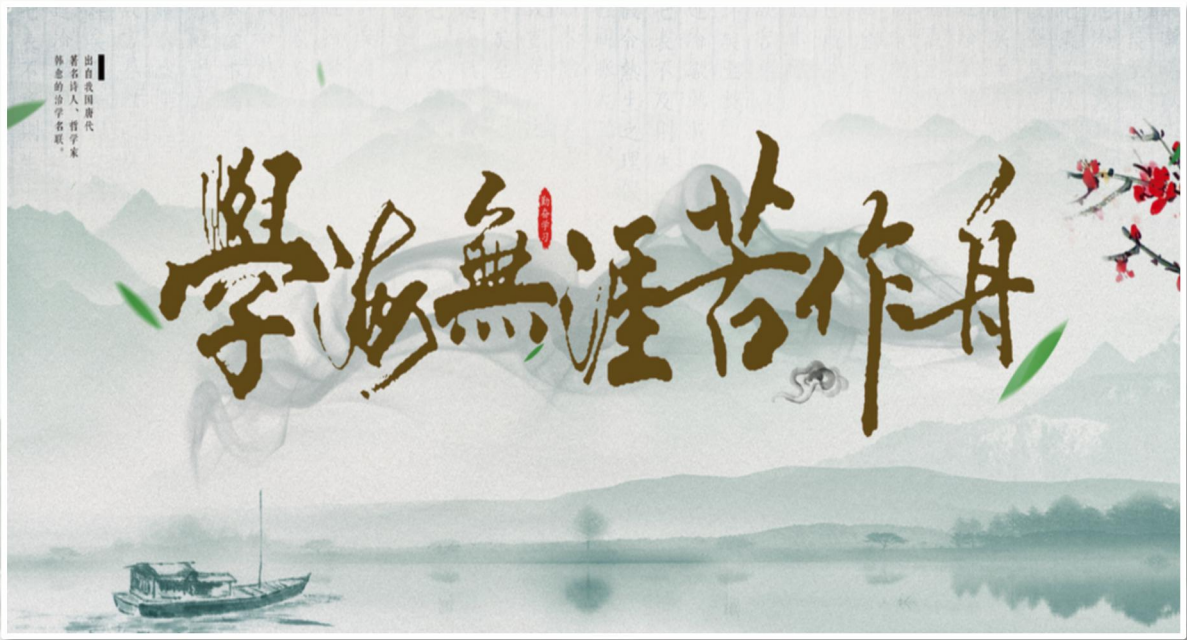 出自我国唐代
著名诗人、哲学家
韩愈的治学名联。
學海無涯苦作舟
勤奋学习